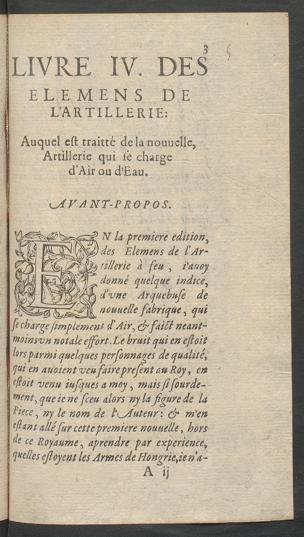 3 5
LIVRE IV. DES
ELEMENS DE
L'ARTILLERIE:
Auquel est traitté de la nouuelle,
Artillerie qui se charge
d'Air ou d'Eau.
AVANT-PROPOS.
EN la premiere edition,
des Elemens de l'Ar-
tillerie à feu, i'auoy
donné quelque indice,
d'vne Arquebuse de
nouuelle fabrique, qui
se charge simplement d'Air, & faict neant-
moins vn notale effort. Le bruit qui en estoit
lors parmi quelques personnages de qualité,
qui en auoient veu faire present au Roy, en
estoit venu iusques a moy, mais si sourde-
ment, que ie ne sceu alors ny la figure de la
Piece, ny le nom de l'Auteur: & m'en
estant allé sur cette premiere nouuelle, hors
de ce Royaume, aprendre par experience,
quelles estoyent les Armes de Hongrie, ie n'a-
A ij